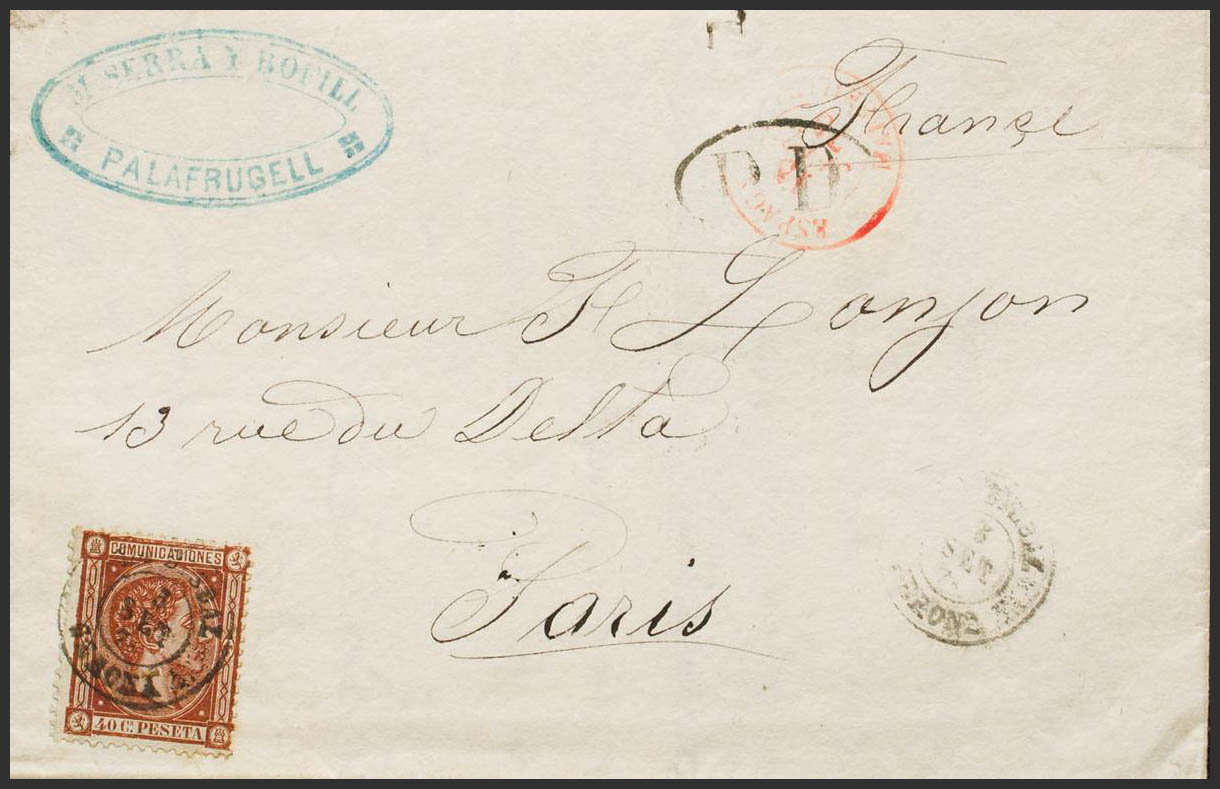 M. SERRA Y BOFILL
PALAFRUGELL
Françe
P.D
ESPAG
Monsieur F Lonjon
13 rue du Delta
Paris
COMUNICACIONES
SET
40 Cs PESETA
SET